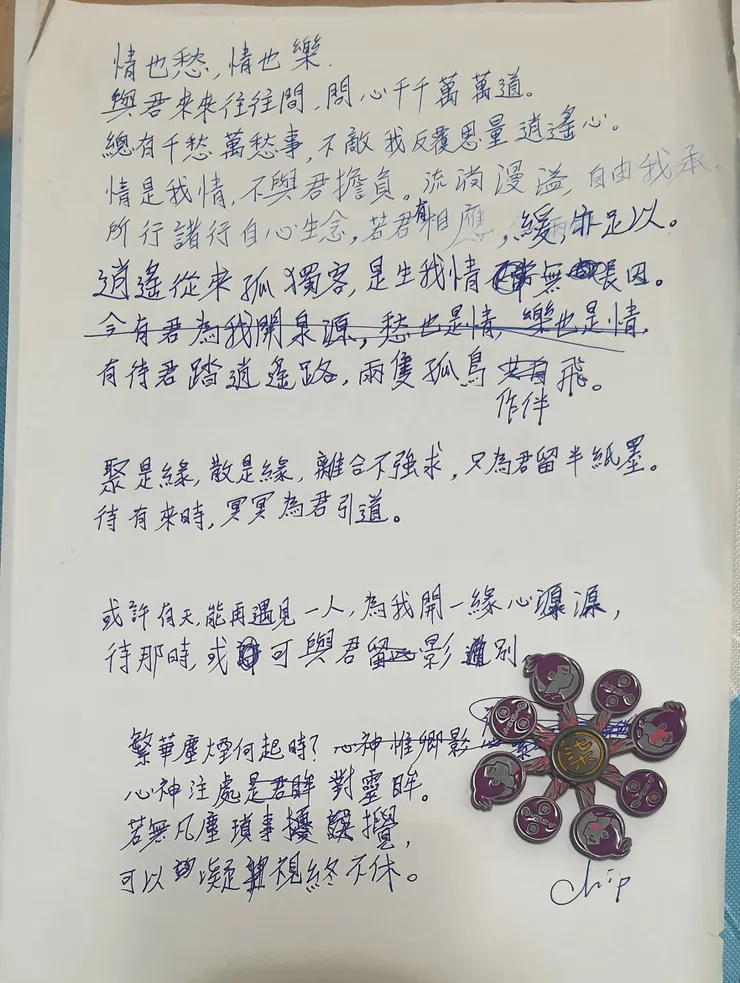 情也愁,情也樂.
與君來來往往間,問心千千萬萬道。
總有千愁萬愁事,不敵我反覆思量逍遙心。
情是我情,不與君擔負。流淌漫溢,自由我承。
所行諸行自心生念,若君有相應,緩,亦足以。
逍遙從來孤獨客,是生我情無長因。
今有君為我開泉源,愁也是情,樂也是情,
有待君踏逍遙路,兩隻孤鳥共有飛。
作伴
聚是緣,散是緣,離合不強求,只為君留半紙墨。
待有來時,冥冥為君引道。
或許有天,能再遇見一人,為我開一緣心源源,
待那時,或可與君留影別
繁華塵煙何起時?心神惟鄉影
心神注處是君眸對靈眸。
若無凡塵瑣事擾誤攪,
可以凝視終不休。
柒
Chip